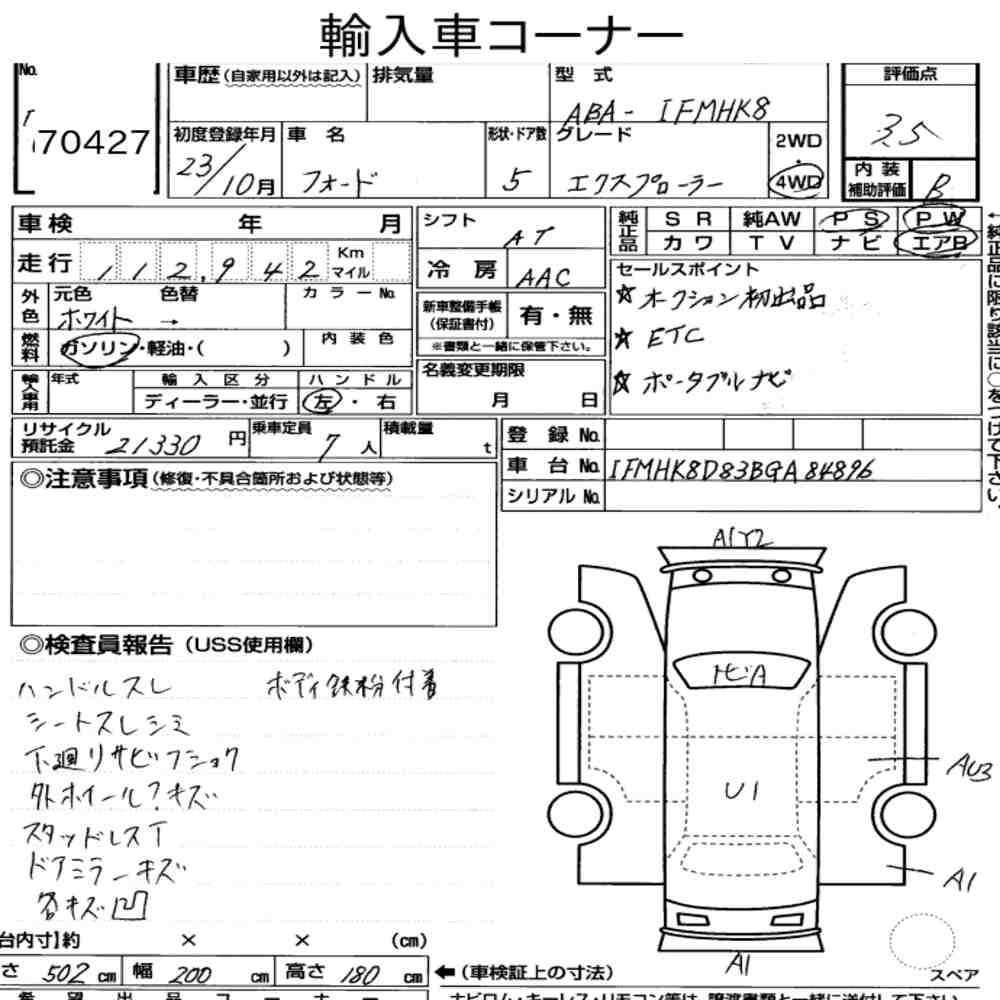 輸入車コーナー
No.
70427
車歴 (自家用以外は記入) 排気量 型式
ABA- 1FMHK8
評価点
3.5
初度登録年月 車名 形状・ドア数 グレード 2WD
23/10月 フォード 5 エクスプローラー 4WD
内装
補助評価 B
車検 年 月
走行 112,942 Km マイル
外色 元色 色替 カラーNo.
ホワイト →
燃料 ガソリン・軽油・( ) 内装色
輸入車用 年式 輸入区分 ハンドル
ディーラー・並行 左・右
シフト AT
冷房 AAC
新車整備手帳
(保証書付) 有・無
※書類と一緒に保管下さい。
名義変更期限
月 日
純正品 SR 純AW PS PW
カワ TV ナビ エアB
セールスポイント
☆オークション初出品
☆ETC
☆ポータブルナビ
←純正品に限り該当に○をつけて下さい。
リサイクル預託金 21330円 乗車定員 7人 積載量 t
登録No.
車台No. 1FMHK8D83BGA84896
シリアルNo.
◎注意事項(修復・不具合箇所および状態等)
◎検査員報告(USS使用欄)
ハンドルスレ ボディ鉄粉付着
シートスレシミ
下廻りサビフショク
外ホイール?キズ
スタッドレスT
ドアミラーキズ
各キズ凹
A1Y2
トビA
U1
AU3
A1
A1
スペア
台内寸】約 × × (cm)
さ 502cm 幅 200cm 高さ 180cm
←(車検証上の寸法)
希望出品コーナー
ナビロム・キーレス・リモコン等は、譲渡書類と一緒に送付して下さい